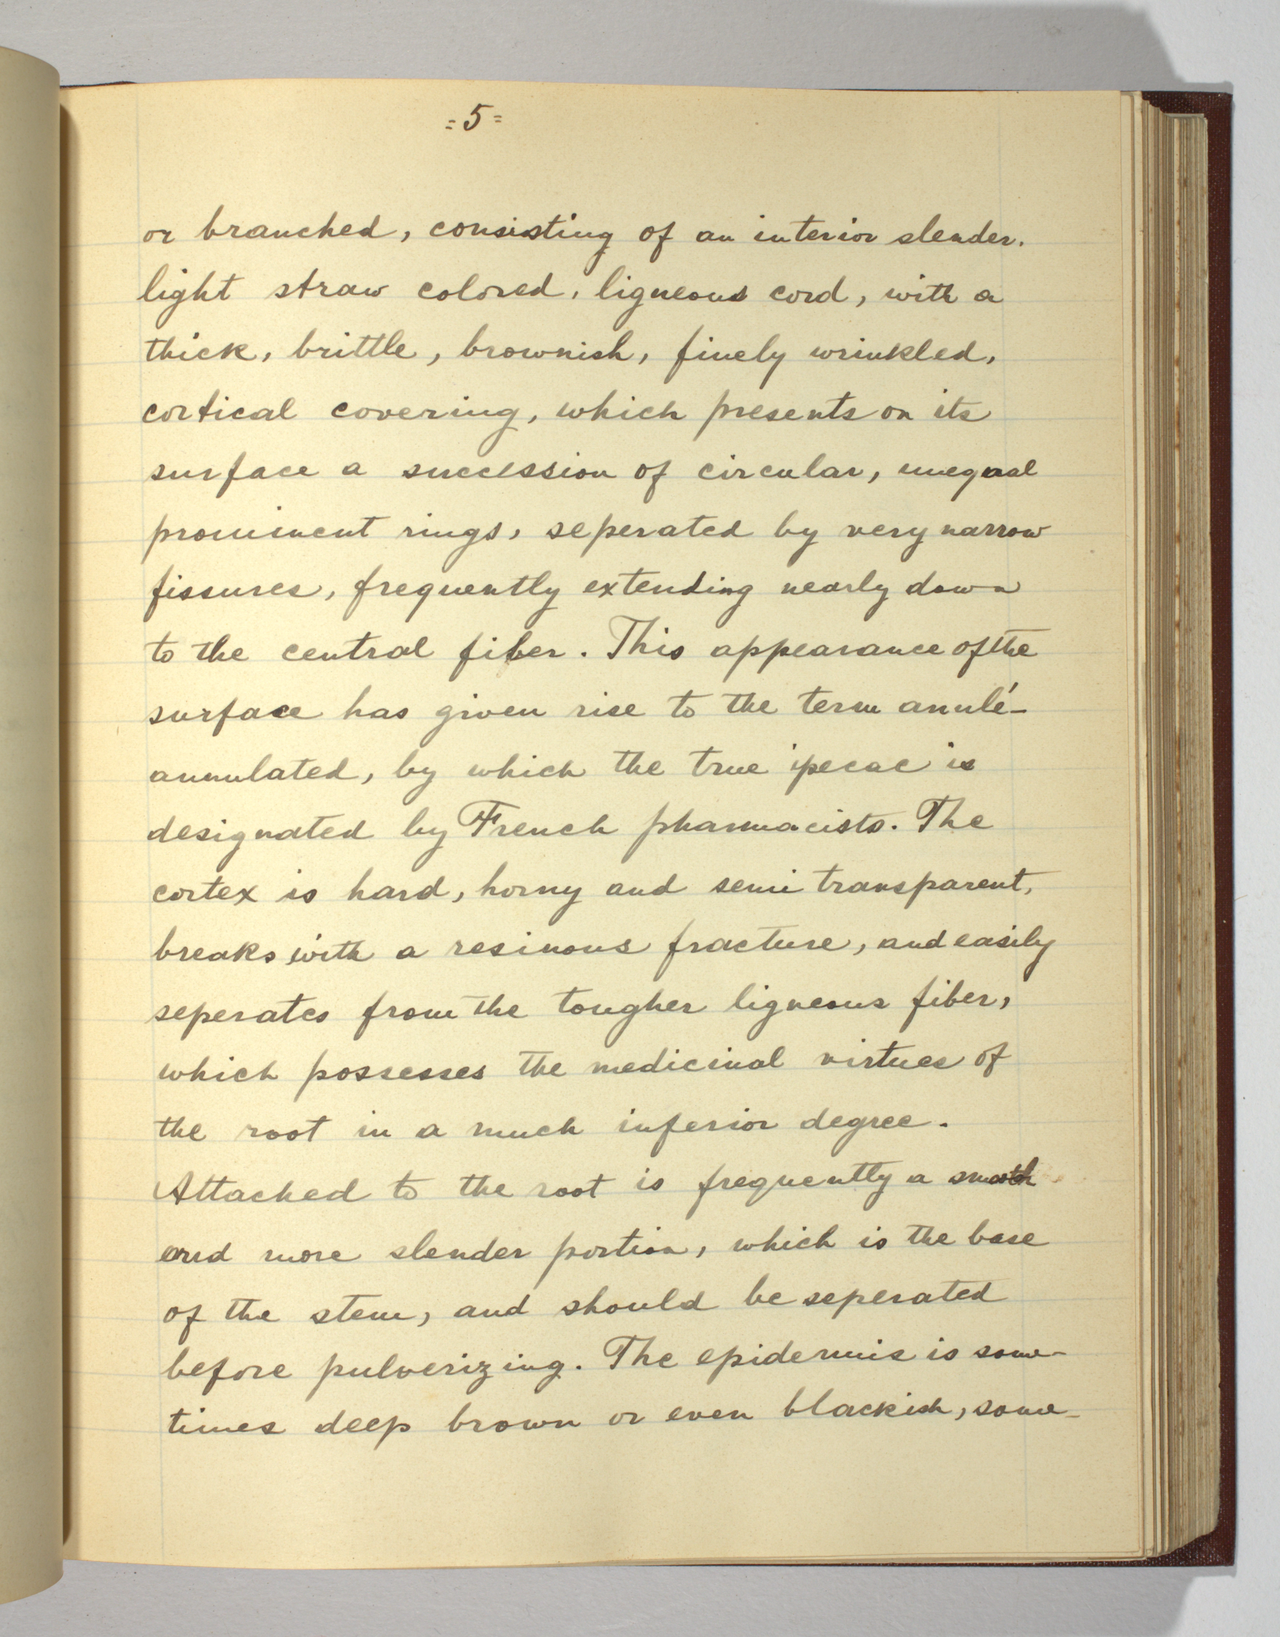 =5=
or branched, consisting of an interior slender.
light straw colored, ligneous cord, with a
thick, brittle, brownish, finely wrinkled,
cortical covering, which presents on its
surface a succession of circular, unequal
prominent rings, seperated by very narrow
fissures, frequently extending nearly down
to the central fiber. This appearance of the
surface has given rise to the term annulé-
annulated, by which the true ipecac is
designated by French pharmacists. The
cortex is hard, horny and semi transparent,
breaks with a resinous fracture, and easily
seperates from the tougher ligneous fiber,
which possesses the medicinal virtues of
the root in a much inferior degree.
Attached to the root is frequently a smooth
and more slender portion, which is the base
of the stem, and should be seperated
before pulverizing. The epidermis is some-
times deep brown or even blackish, some-